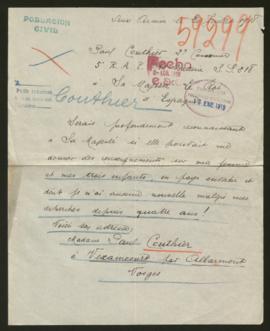 POBLACION
CIVIL
59299
Paul Couthier 2e
5e R.A.P. S.P. 218
Fecha
à Sa Majesté le Roi
Couthier
d'Espagne
Serais profondément reconnaissant
à Sa Majesté si elle pouvait me
donner des renseignements sur ma femme
et mes trois enfants, en pays envahi et
dont je n'ai aucune nouvelle malgré mes
recherches depuis quatre ans!
Voici son adresse
Madame Paul Couthier
à Vexaincourt par Allarmont
Vosges